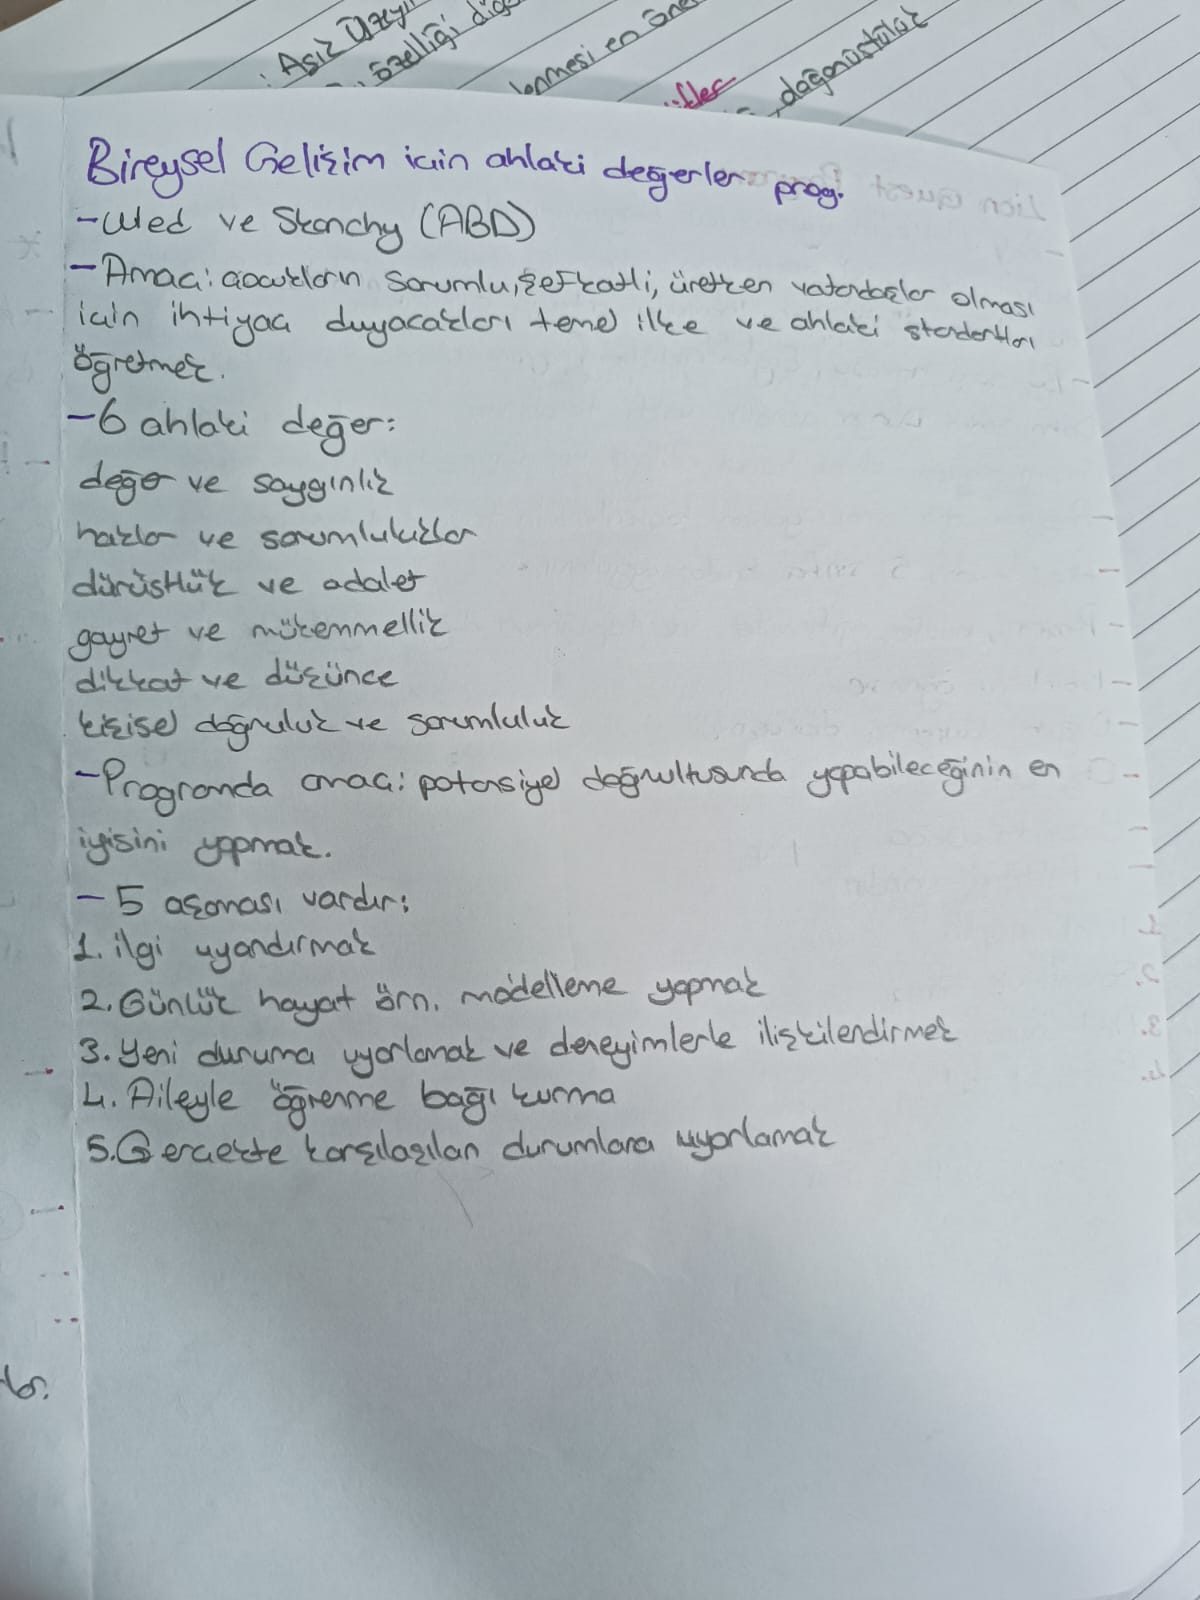 : Asıl Düzey
özelliği diğ
lenmesi en öne
doğanüstülük
Bireysel Gelişim için ahlaki değerler prog.
- Wled ve Skanchy (ABD)
- Amaç: çocukların sorumlu, şefkatli, üretken vatandaşlar olması
için ihtiyaç duyacakları temel ilke ve ahlaki standartları
öğretmek.
- 6 ahlaki değer:
değer ve saygınlık
haklar ve sorumluluklar
dürüstlük ve adalet
gayret ve mükemmellik
dikkat ve düşünce
kişisel doğruluk ve sorumluluk
- Programda amaç: potansiyel doğrultusunda yapabileceğinin en
iyisini yapmak.
- 5 aşaması vardır:
1. ilgi uyandırmak
2. Günlük hayat örn. modelleme yapmak
3. Yeni duruma uyarlamak ve deneyimlerle ilişkilendirmek
4. Aileyle öğrenme bağı kurma
5. Gerçekte karşılaşılan durumlara uyarlamak